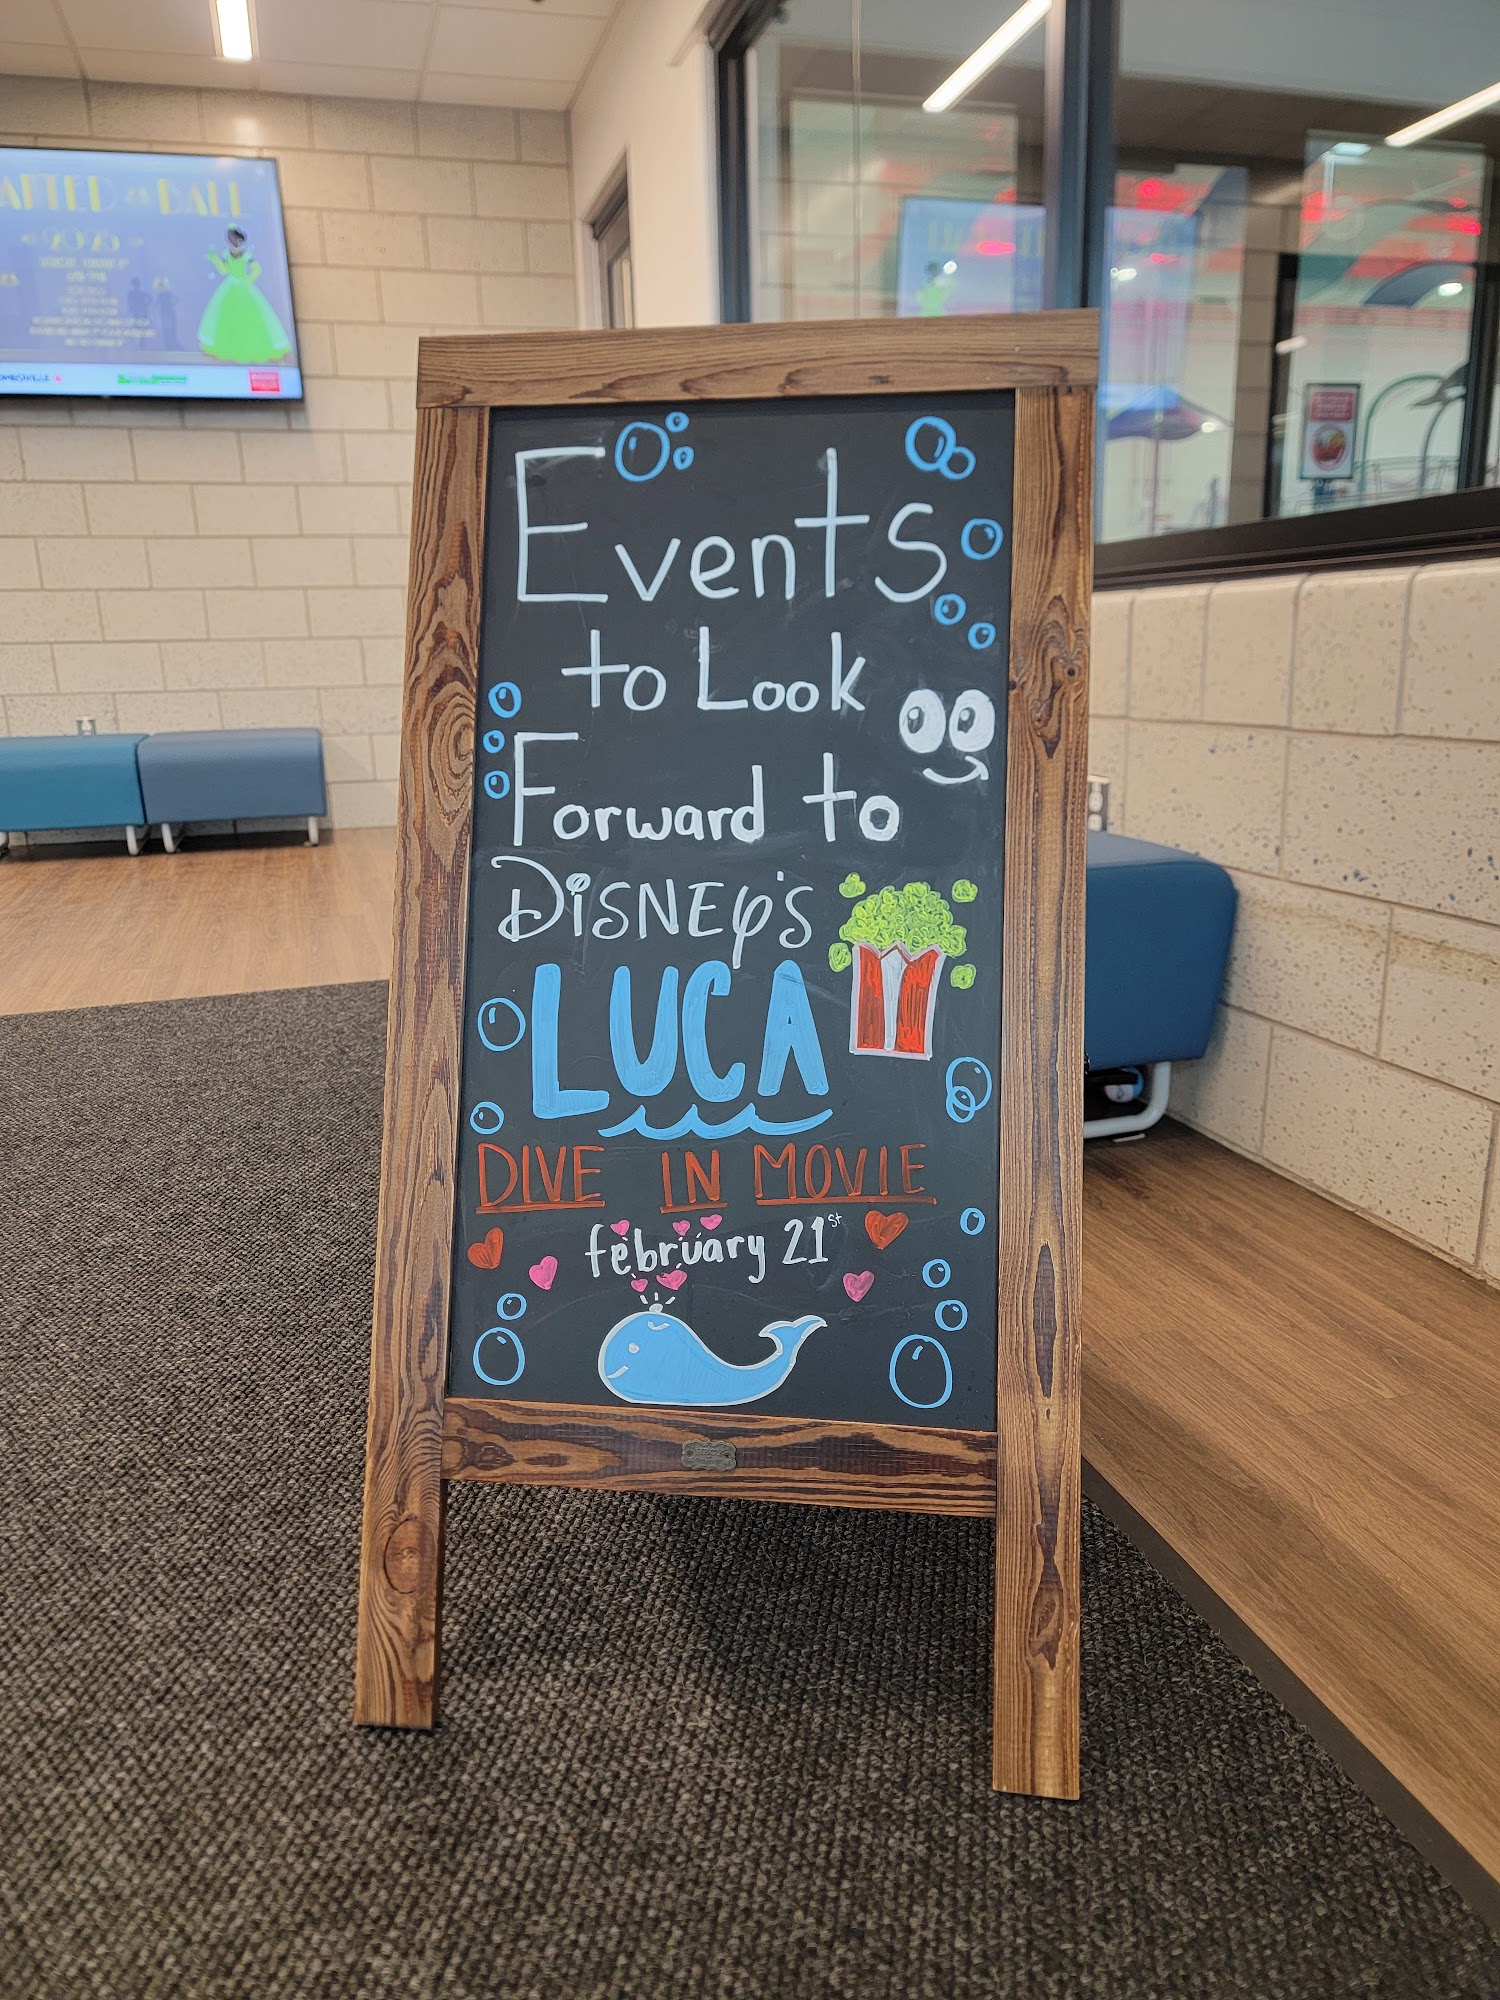 Events
to Look
Forward to
DiSNEy's
LUCA
DIVE IN MOVIE
february 21st
BALL
2025